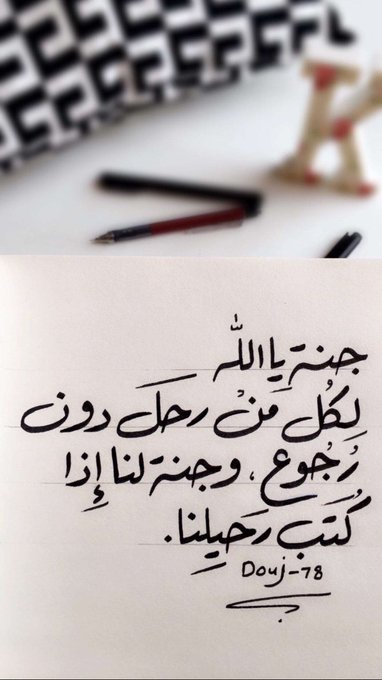 جنة يا الله
لِكُل مَنْ رحلَ دون
رُجُوع، وجنة لنا إِذا
كُتَبَ رَحيلِنا.
Douj-78